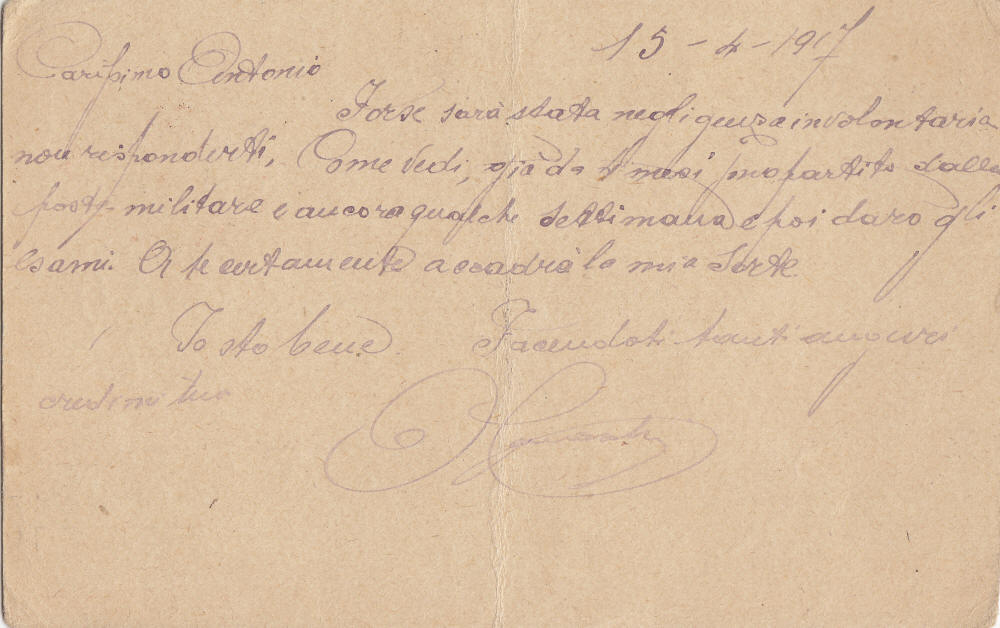 15-4-1917
Carissimo Antonio
Forse sarà stata negligenza involontaria
non risponderti, Come vedi, già da mesi partito dalla
posta militare e ancora qualche settimana e poi daro gli
esami. A te certamente accadrà la mia Sorte
Io sto bene Facendoti tanti auguri
credimi tuo